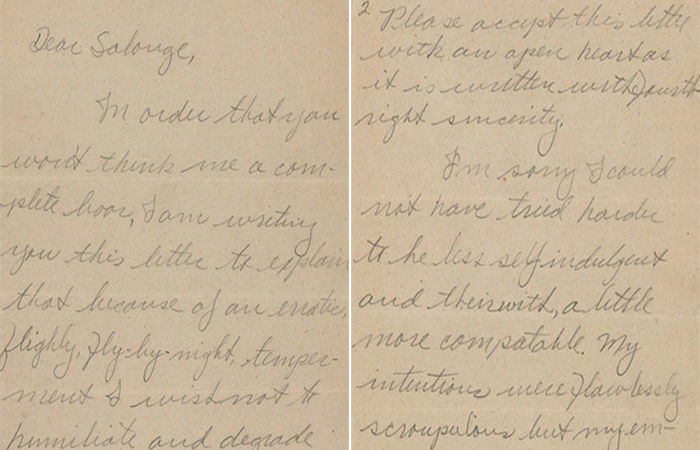 Dear Salonge,
In order that you
won't think me a com-
plete boor, I am writing
you this letter to explain
that because of an erratic,
flighly, fly-by-night, temper-
ment I wish not to
humiliate and degrade
2
Please accept this letter
with an open heart as
it is written with forth
right sincerity.
I'm sorry I could
not have tried harder
to be less self indulgent
and theirwith, a little
more compatable. My
intentions were flawlessly
scroupulous but my em-